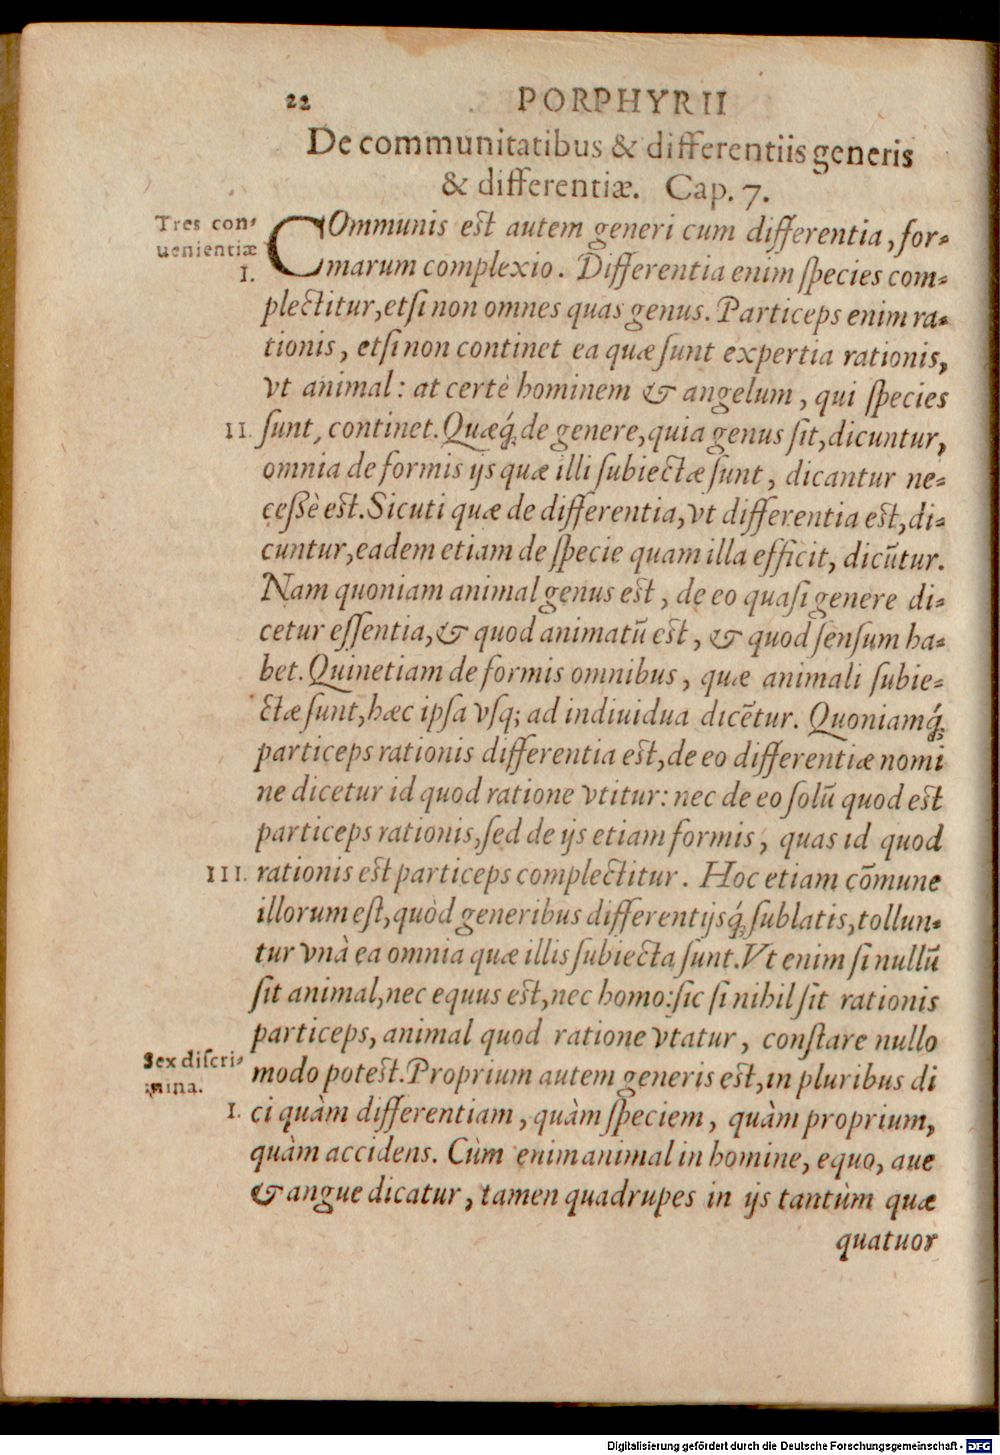 22 PORPHYRII
De communitatibus & differentiis generis
& differentiæ. Cap. 7.
Tres con-
uenientiæ
I.
COmmunis est autem generi cum differentia, for-
marum complexio. Differentia enim ſpecies com-
plectitur, etſi non omnes quas genus. Particeps enim ra-
tionis, etſi non continet ea quæ ſunt expertia rationis,
vt animal: at certè hominem & angelum, qui ſpecies
II. ſunt, continet. Quæq́ꝫ de genere, quia genus ſit, dicuntur,
omnia de formis ijs quæ illi ſubiectæ ſunt, dicantur ne-
ceßè est. Sicuti quæ de differentia, vt differentia est, di-
cuntur, eadem etiam de ſpecie quam illa efficit, dicũtur.
Nam quoniam animal genus est, de eo quaſi genere di-
cetur eſſentia, & quod animatũ est, & quod ſenſum ha-
bet. Quinetiam de formis omnibus, quæ animali ſubie-
ctæ ſunt, hæc ipſa vſq; ad indiuidua dicẽtur. Quoniamq́ꝫ
particeps rationis differentia est, de eo differentiæ nomi
ne dicetur id quod ratione vtitur: nec de eo ſolũ quod est
particeps rationis, ſed de ijs etiam formis, quas id quod
III. rationis est particeps complectitur. Hoc etiam cõmune
illorum eſt, quòd generibus differentijsq́ꝫ ſublatis, tollun-
tur vnà ea omnia quæ illis ſubiecta ſunt. Vt enim ſi nullũ
ſit animal, nec equus est, nec homo: ſic ſi nihil ſit rationis
particeps, animal quod ratione vtatur, conſtare nullo
Sex diſcri-
mina.
modo potest. Proprium autem generis est, in pluribus di
I. ci quàm differentiam, quàm ſpeciem, quàm proprium,
quàm accidens. Cùm enim animal in homine, equo, aue
& angue dicatur, tamen quadrupes in ijs tantùm quæ
quatuor
Digitalisierung gefördert durch die Deutsche Forschungsgemeinschaft - DFG